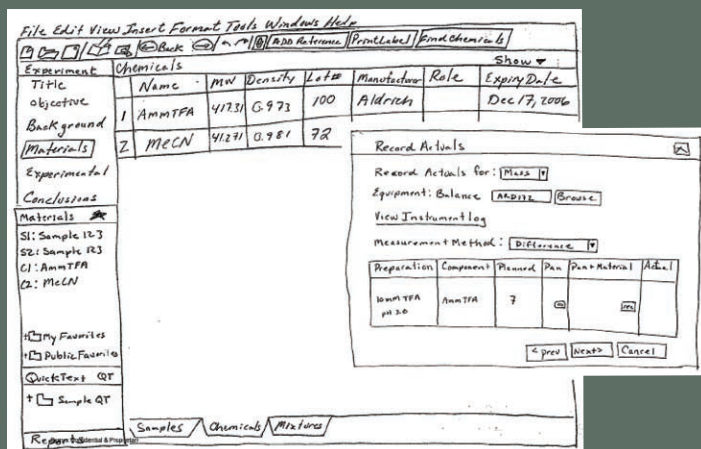 File Edit View Insert Format Tools Windows Help
Back Add Reference Print Label Find Chemicals
Experiment
Title
objective
Background
Materials
Experimental
Conclusions
Materials
S1: Sample 123
S2: Sample 123
C1: AmmTFA
C2: MeCN
My Favorites
Public Favorites
QuickText QT
Sample QT
Reports
Chemicals Show
Name MW Density Lot# Manufacturer Role Expiry Date
1 AmmTFA 417.31 0.973 100 Aldrich Dec 17, 2006
2 MeCN 41.271 0.981 72
Samples Chemicals Mixtures
Record Actuals
Record Actuals for: Mass
Equipment: Balance Browse
View Instrument log
Measurement Method: Difference
Preparation Component Planned Pan Pan+Material Actual
10mM TFA AmmTFA 7
pH 3.0
< prev Next> Cancel